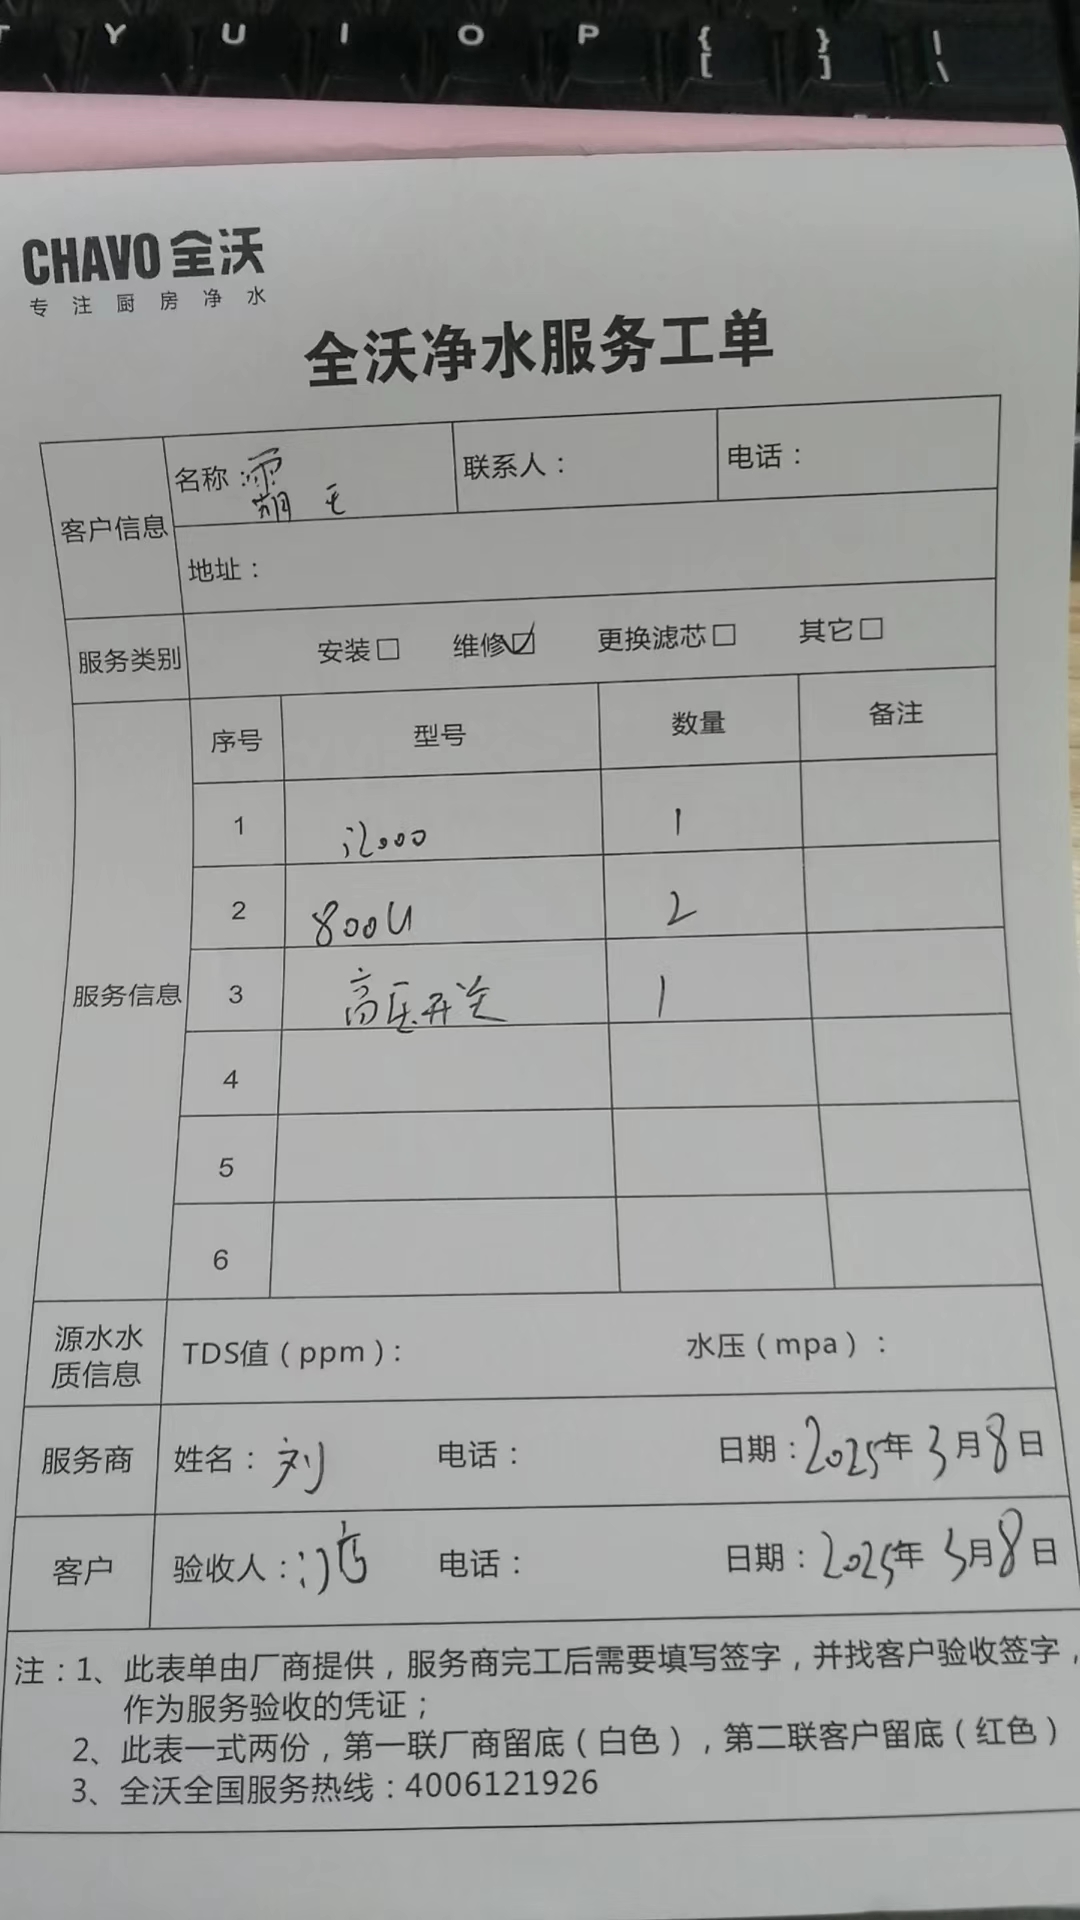 T Y U I O P { [ } ] | \
CHAVO 全沃
专注厨房净水
全沃净水服务工单
客户信息 名称：霸王 联系人： 电话：
地址：
服务类别 安装□ 维修☑ 更换滤芯□ 其它□
服务信息 序号 型号 数量 备注
1 i2000 1
2 800U 2
3 高压开关 1
4
5
6
源水水质信息 TDS值（ppm）： 水压（mpa）：
服务商 姓名：刘 电话： 日期：2025年3月8日
客户 验收人： 电话： 日期：2025年3月8日
注：1、此表单由厂商提供，服务商完工后需要填写签字，并找客户验收签字，
作为服务验收的凭证；
2、此表一式两份，第一联厂商留底（白色），第二联客户留底（红色）
3、全沃全国服务热线：4006121926